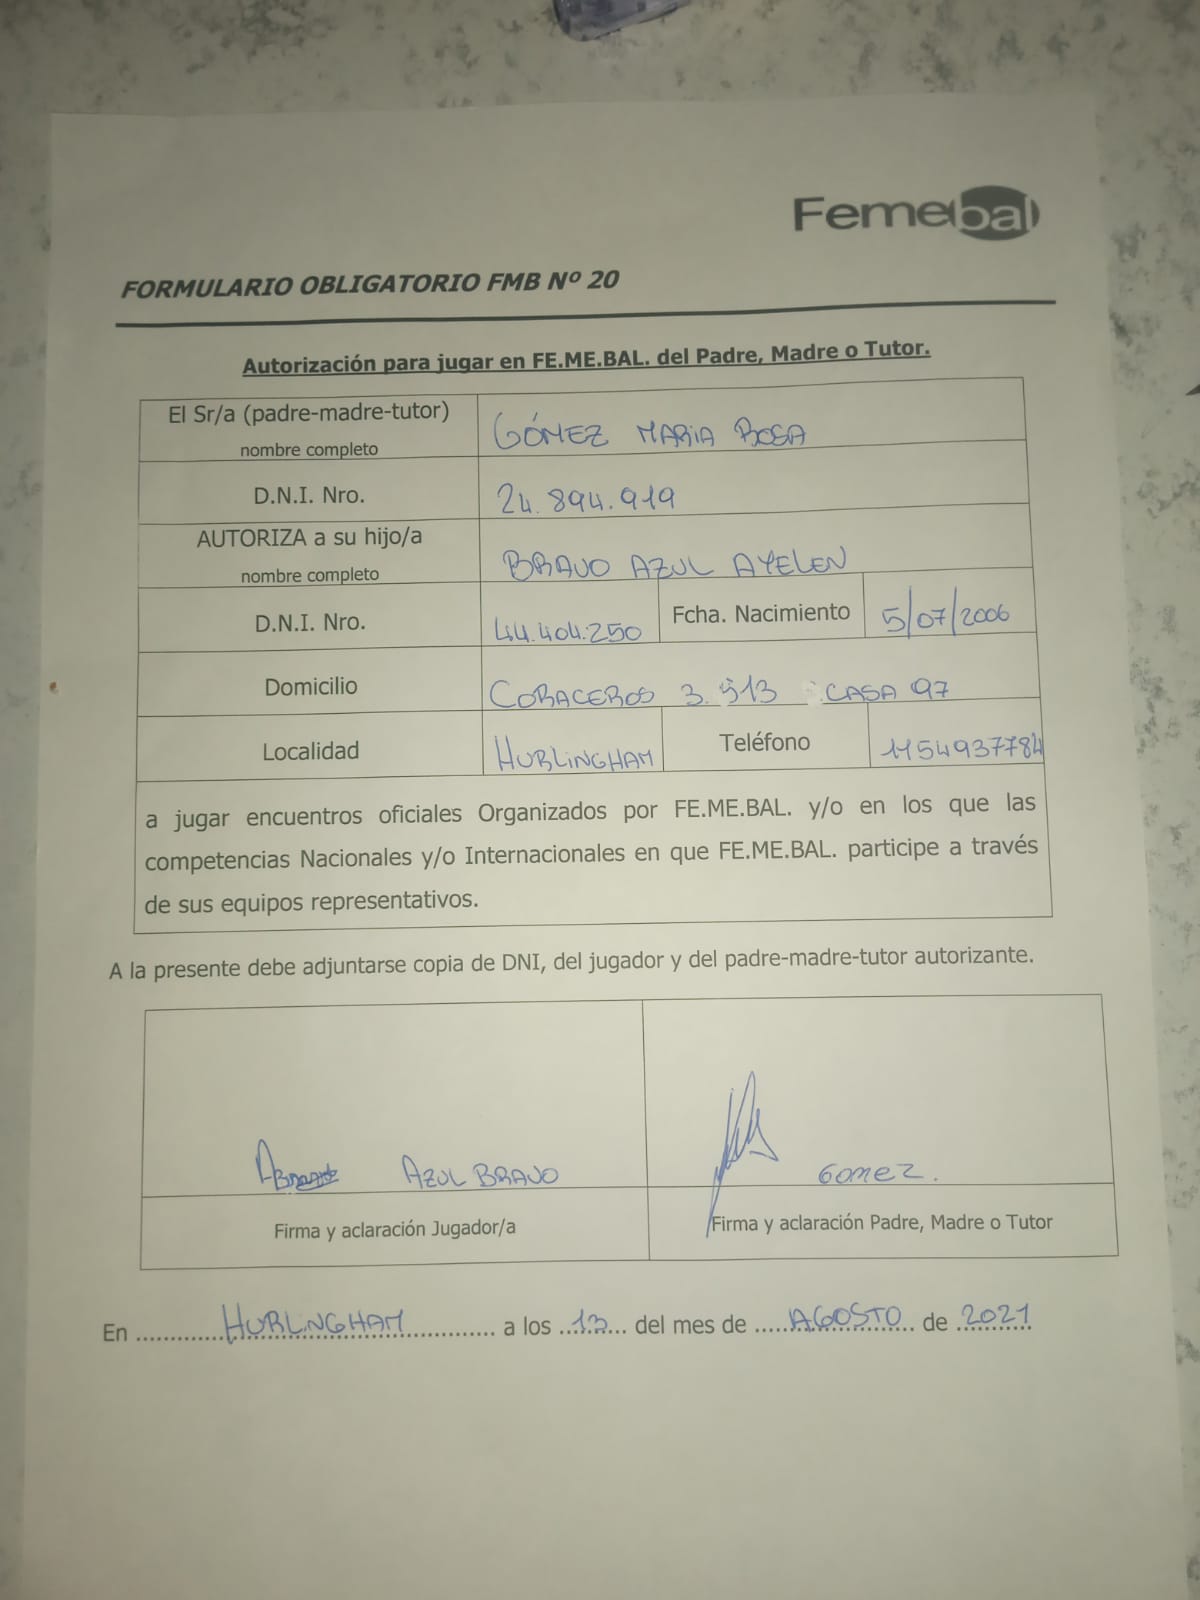 Femebal
FORMULARIO OBLIGATORIO FMB Nº 20
Autorización para jugar en FE.ME.BAL. del Padre, Madre o Tutor.
El Sr/a (padre-madre-tutor) nombre completo GÓMEZ MARIA ROSA
D.N.I. Nro. 24.894.919
AUTORIZA a su hijo/a nombre completo BRAVO AZUL AYELEN
D.N.I. Nro. 44.404.250 Fcha. Nacimiento 5/07/2006
Domicilio CORACEROS 3.513 CASA 97
Localidad HURLINGHAM Teléfono 1154937784
a jugar encuentros oficiales Organizados por FE.ME.BAL. y/o en los que las
competencias Nacionales y/o Internacionales en que FE.ME.BAL. participe a través
de sus equipos representativos.
A la presente debe adjuntarse copia de DNI, del jugador y del padre-madre-tutor autorizante.
AZUL BRAVO GOMEZ.
Firma y aclaración Jugador/a Firma y aclaración Padre, Madre o Tutor
En HURLINGHAM a los 13 del mes de AGOSTO de 2021